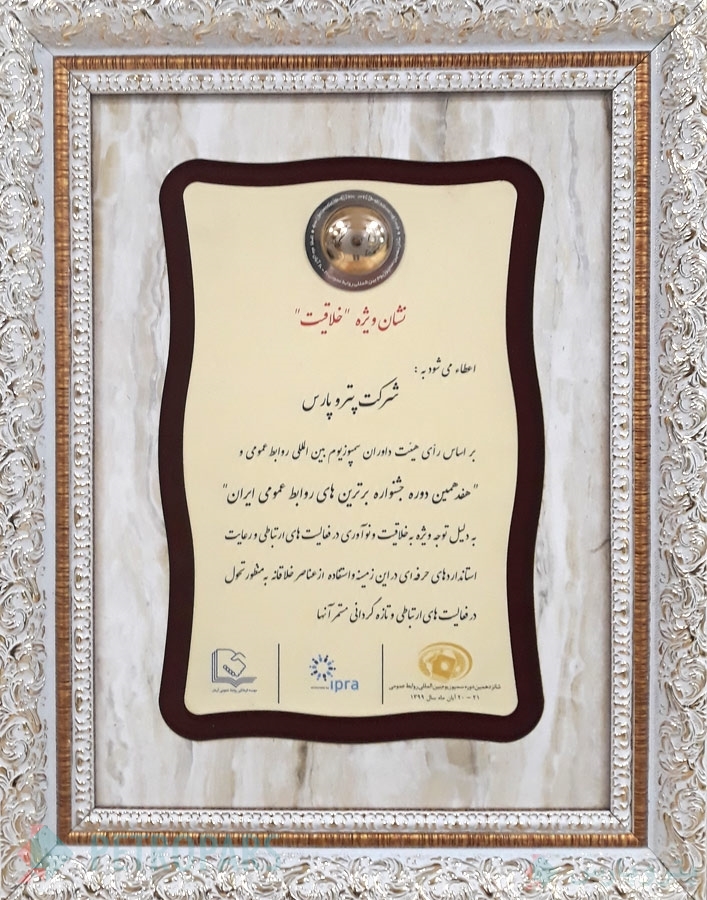 نشان ویژه "خلاقیت"
اعطاء می شود به :
شرکت پترو پارس
بر اساس رأی هیئت داوران سمپوزیوم بین المللی روابط عمومی و
"هفدهمین دوره جشنواره برترین های روابط عمومی ایران"
به دلیل توجه ویژه به خلاقیت و نوآوری در فعالیت های ارتباطی و رعایت
استانداردهای حرفه ای در این زمینه و استفاده از عناصر خلاقانه به منظور تحول
در فعالیت های ارتباطی و تازه گردانی مستمر آنها
شانزدهمین دوره سمپوزیوم بین المللی روابط عمومی
۲۱ - ۲۰ آبان ماه سال ۱۳۹۹
ipra
PETROPARS